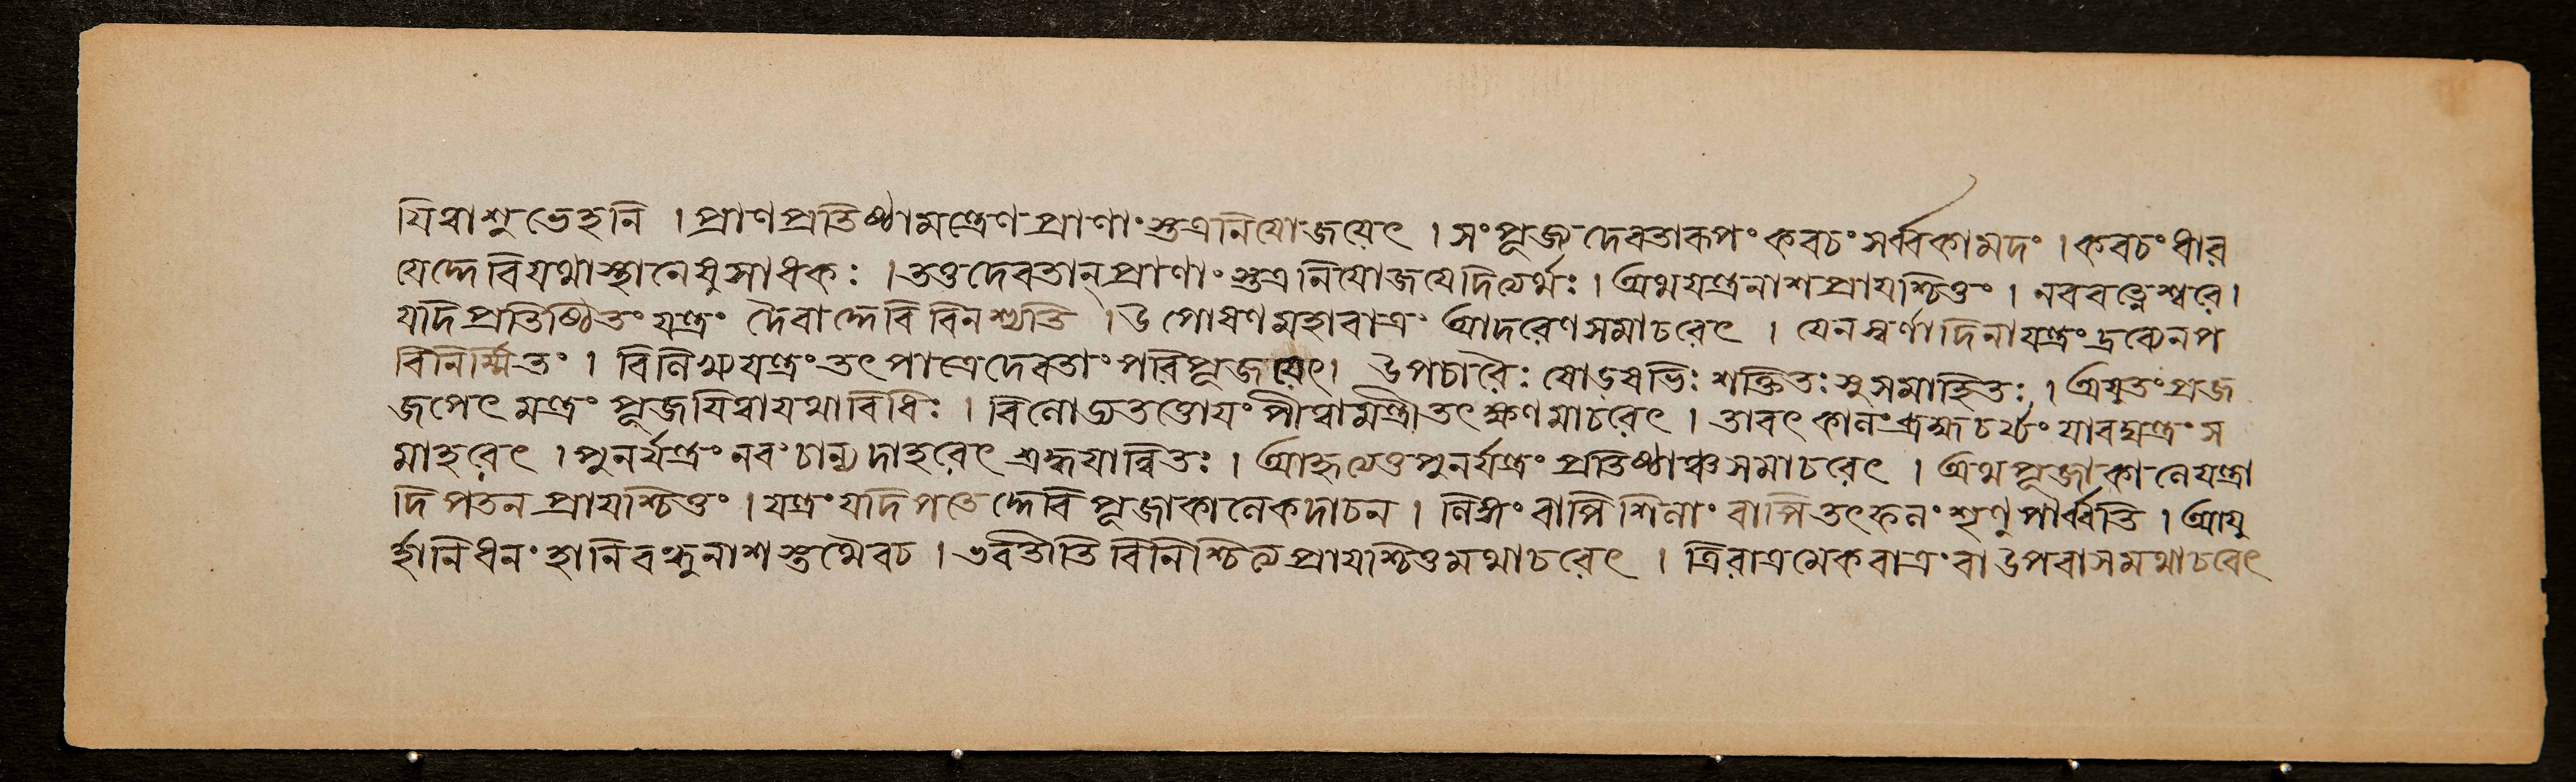 যিত্বাশুভেহনি । প্রাণপ্রতিষ্ঠামন্ত্রেণপ্রাণাংস্তত্রনিযোজযেৎ । সংপূজ্যদেবতারূপং কবচং সর্ব্বকামদং । কবচং ধার
যেদ্দেবিযথাস্থানেষুসাধকঃ । তত্তদেবতান্ প্রাণাংস্তত্রনিযোজযেদিত্যর্থঃ । অথযন্ত্রনাশপ্রাযশ্চিত্তং । নবরত্নেশ্বরে ।
যদিপ্রতিষ্ঠিতং যন্ত্রং দৈবাদ্দেবি বিনশ্যতি । উপোষণমহারাত্রং আদরেণসমাচরেৎ । যেনস্বর্ণাদিনাযন্ত্রং দ্রব্যেনপ
রিনির্ম্মিতং । বিনিক্ষ্যযন্ত্রং তৎপাত্রেদেবতাং পরিপূজযেৎ । উপচারৈঃ ষোড়শভিঃ শক্তিতঃ সুসমাহিতঃ । অযুতং প্রজ
জপেৎ মন্ত্রং পূজযিত্বাযথাবিধিঃ । বিলোড্যতত্তোযং পীত্বামন্ত্রীতৎক্ষণমাচরেৎ । তাবৎ কালং ব্রহ্মচর্য্যং যাবদ্যন্ত্রং স
মাহরেৎ । পুনর্যন্ত্রং নবং চান্যদাহরেৎ শ্রদ্ধযান্বিতঃ । আহৃত্যেতুপুনর্যন্ত্রং প্রতিষ্ঠাঞ্চসমাচরেৎ । অথপূজাকালেযন্ত্রা
দিপতনপ্রাযশ্চিত্তং । যন্ত্রং যদিপতেদ্দেবি পূজাকালেকদাচন । লিঙ্গং বাপি শিলাং বাপি তৎফলং শৃণু পার্ব্বতি । আযু
র্হানিধনং হানিবন্ধুনাশস্তথৈবচ । ভবতীতিবিনিশ্চিত্যপ্রাযশ্চিত্তমথাচরেৎ । ত্রিরাত্রমেকরাত্রং বা উপবাসমথাচরেৎ